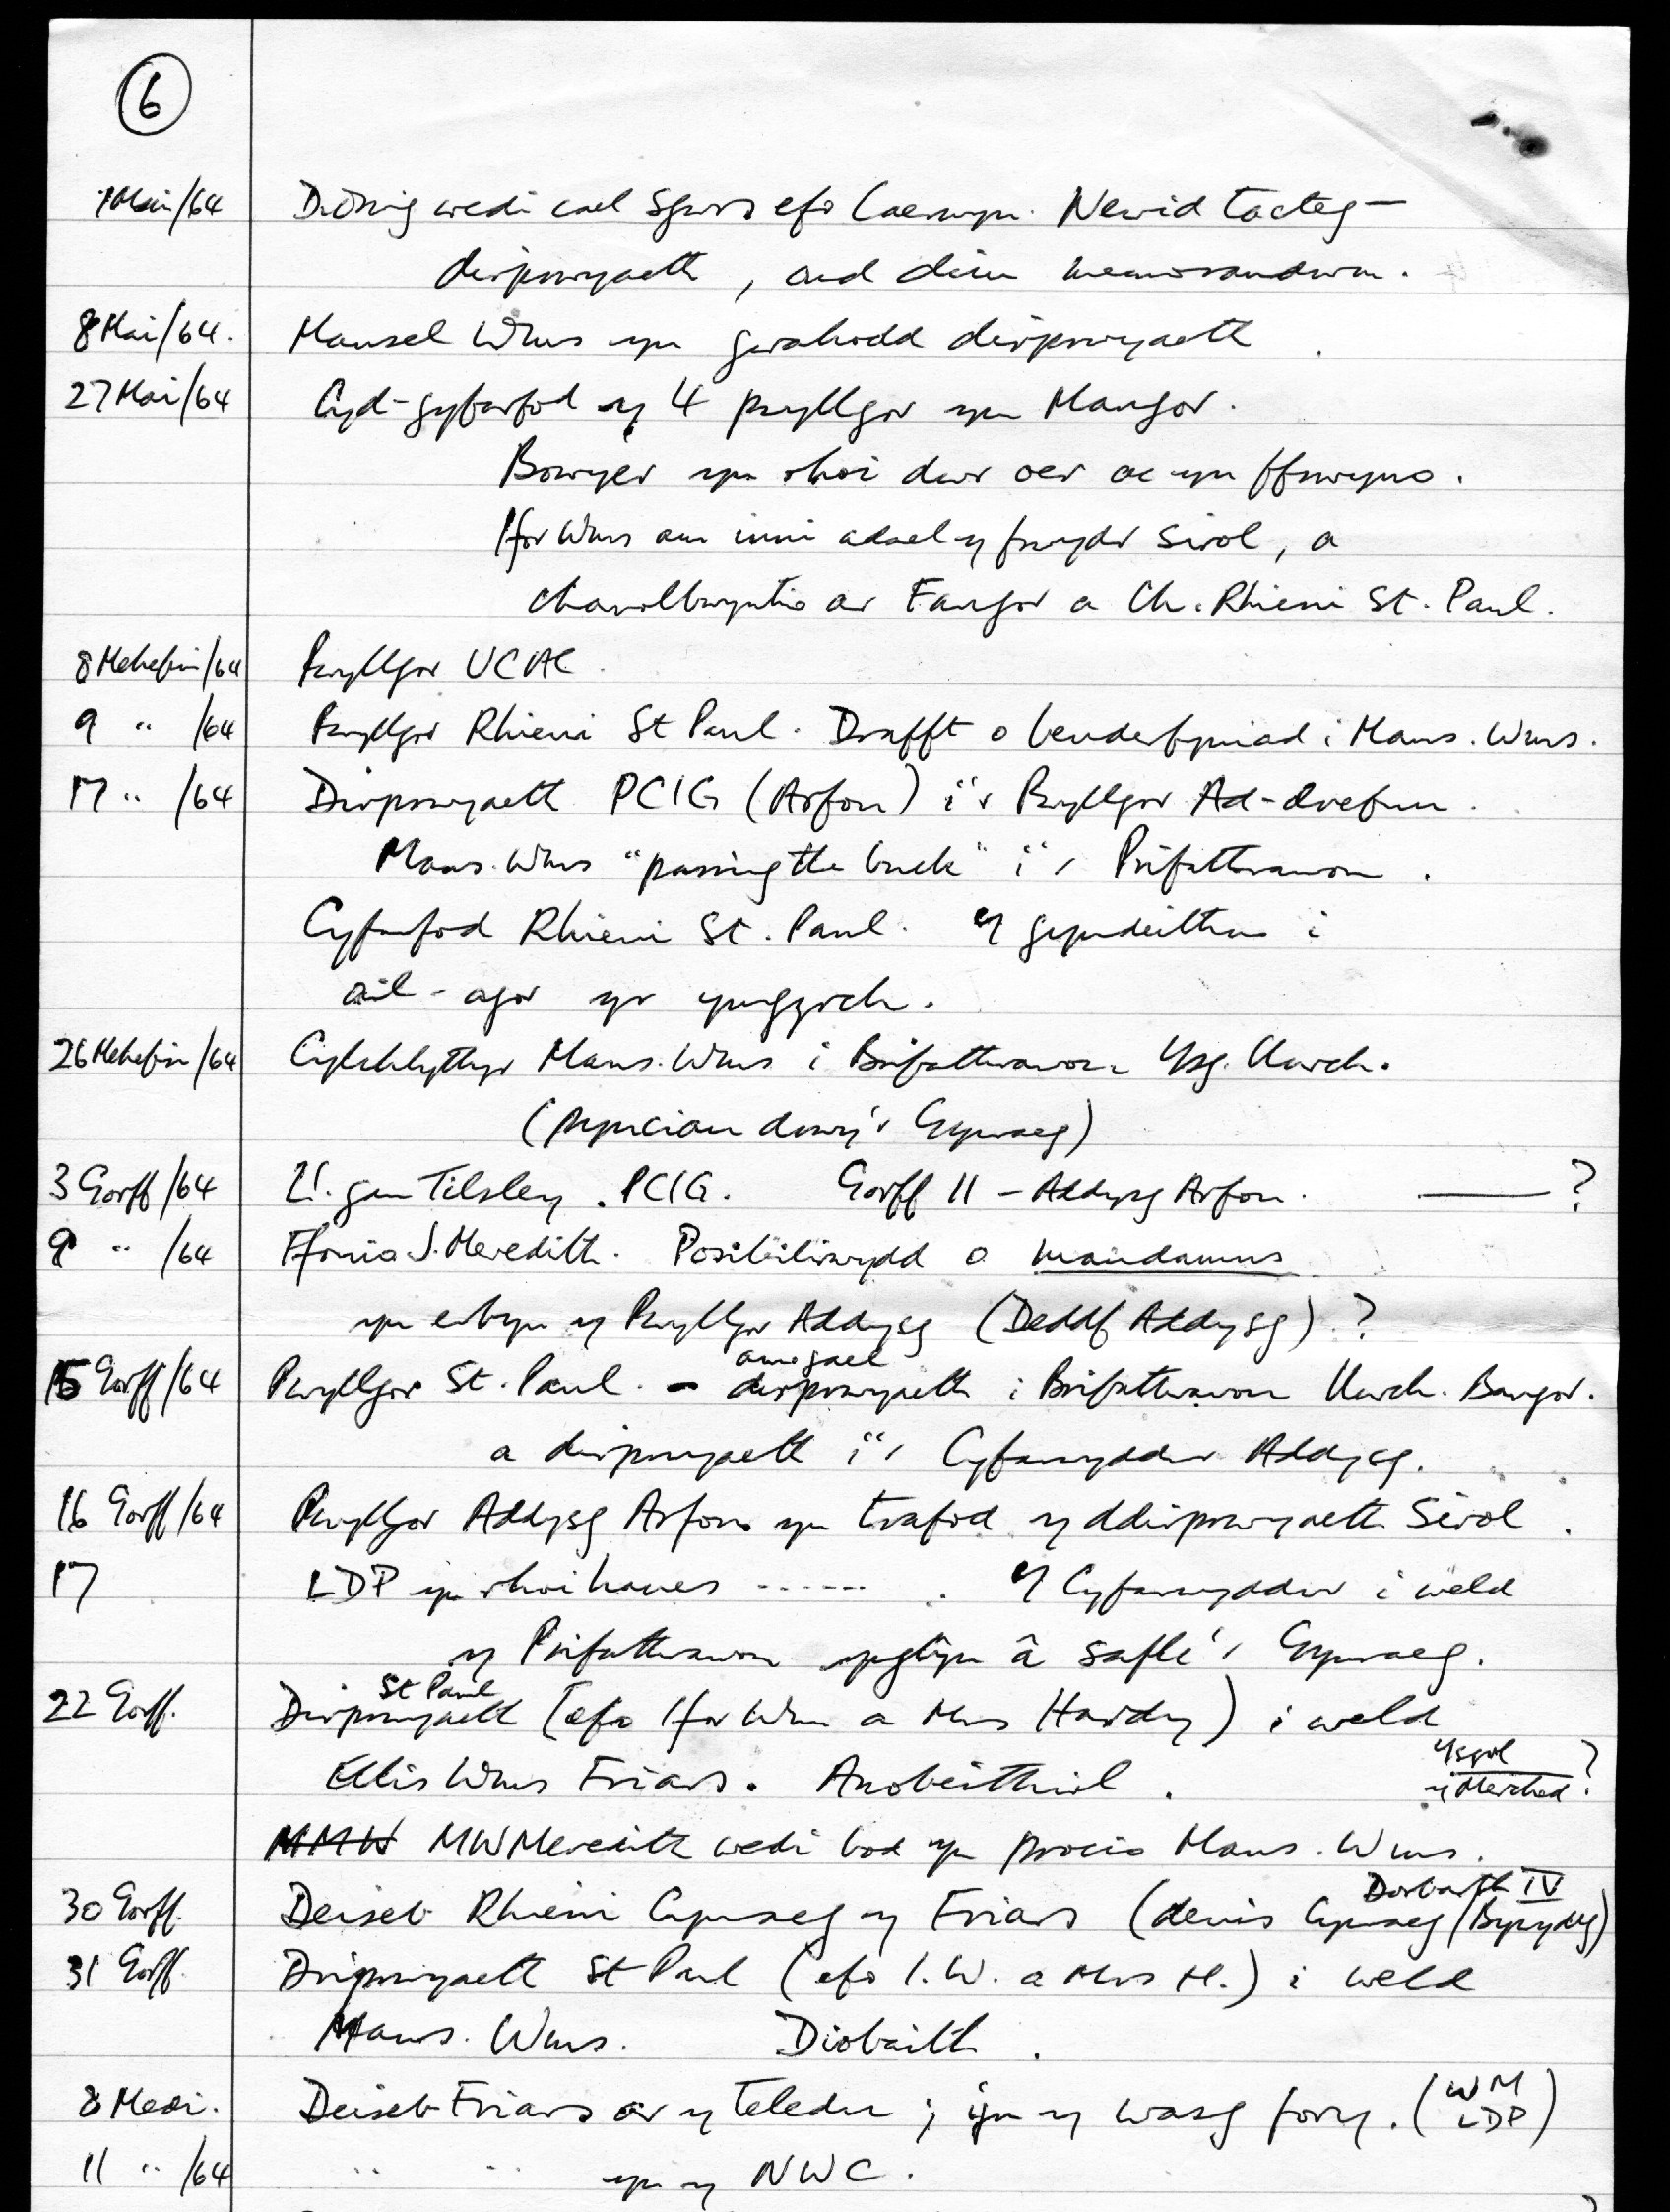 6
1 Mai/64 Dwing wedi cael sgwrs efo Caerwyn. Newid tacteg —
dirprwyaeth, and dim memorandwm.
8 Mai/64. Mansel Wms yn gwahodd dirprwyaeth.
27 Mai/64 Cyd-gyfarfod y 4 pwyllgor yn Mangor.
Bowyer yn rhoi dwr oer ac yn ffrwyno.
Ifor Wms am inni adael y frwydr sirol, a
chanolbwyntio ar Fangor a Ch. Rhieni St. Paul.
8 Mehefin/64 Pwyllgor UCAC
9 " /64 Pwyllgor Rhieni St Paul. Drafft o benderfyniad i Mans. Wms.
17 " /64 Dirprwyaeth PCIG (Arfon) i'r Pwyllgor Ad-drefnu.
Mans. Wms "passing the buck" i'r Prifathrawon.
Cyfarfod Rhieni St. Paul. Y gymdeithas i
ail-agor yr ymgyrch.
26 Mehefin/64 Cylchlythyr Mans. Wms i Brifathrawon Ysg. Uwch.
(pynciau drwy'r Gymraeg)
3 Gorff/64 Ll. gan Tilsley. PCIG. Gorff 11 – Addysg Arfon. —— ?
9 " /64 Ffonio J. Meredith. Posibilrwydd o mandamus
yn erbyn y Pwyllgor Addysg (Deddf Addysg)?
15 Gorff/64 Pwyllgor St. Paul. – am gael dirprwyaeth i Brifathrawon Uwch. Bangor.
a dirprwyaeth i'r Cyfarwyddwr Addysg.
16 Gorff/64 Pwyllgor Addysg Arfon yn trafod y ddirprwyaeth Sirol.
17 LDP yn rhoi hanes ------. Y Cyfarwyddwr i weld
y Prifathrawon ynglŷn â safle'r Gymraeg.
22 Gorff. Dirprwyaeth St Paul (efo Ifor Wm a Mrs Hardy) i weld
Ellis Wms Friars. Anobeithiol. Ysgol y Merched?
MMW MW Meredith wedi bod yn procio Mans. Wms.
30 Gorff. Deiseb Rhieni Cymraeg y Friars (dewis Cymraeg/Bywydeg) Dosbarth IV
31 Gorff. Dirprwyaeth St Paul (efo I.W. a Mrs H.) i weld
Mans. Wms. Diobaith.
8 Medi. Deiseb Friars ar y teledu; yn y wasg fory. (WM LDP)
11 " /64 " " yn y NWC.